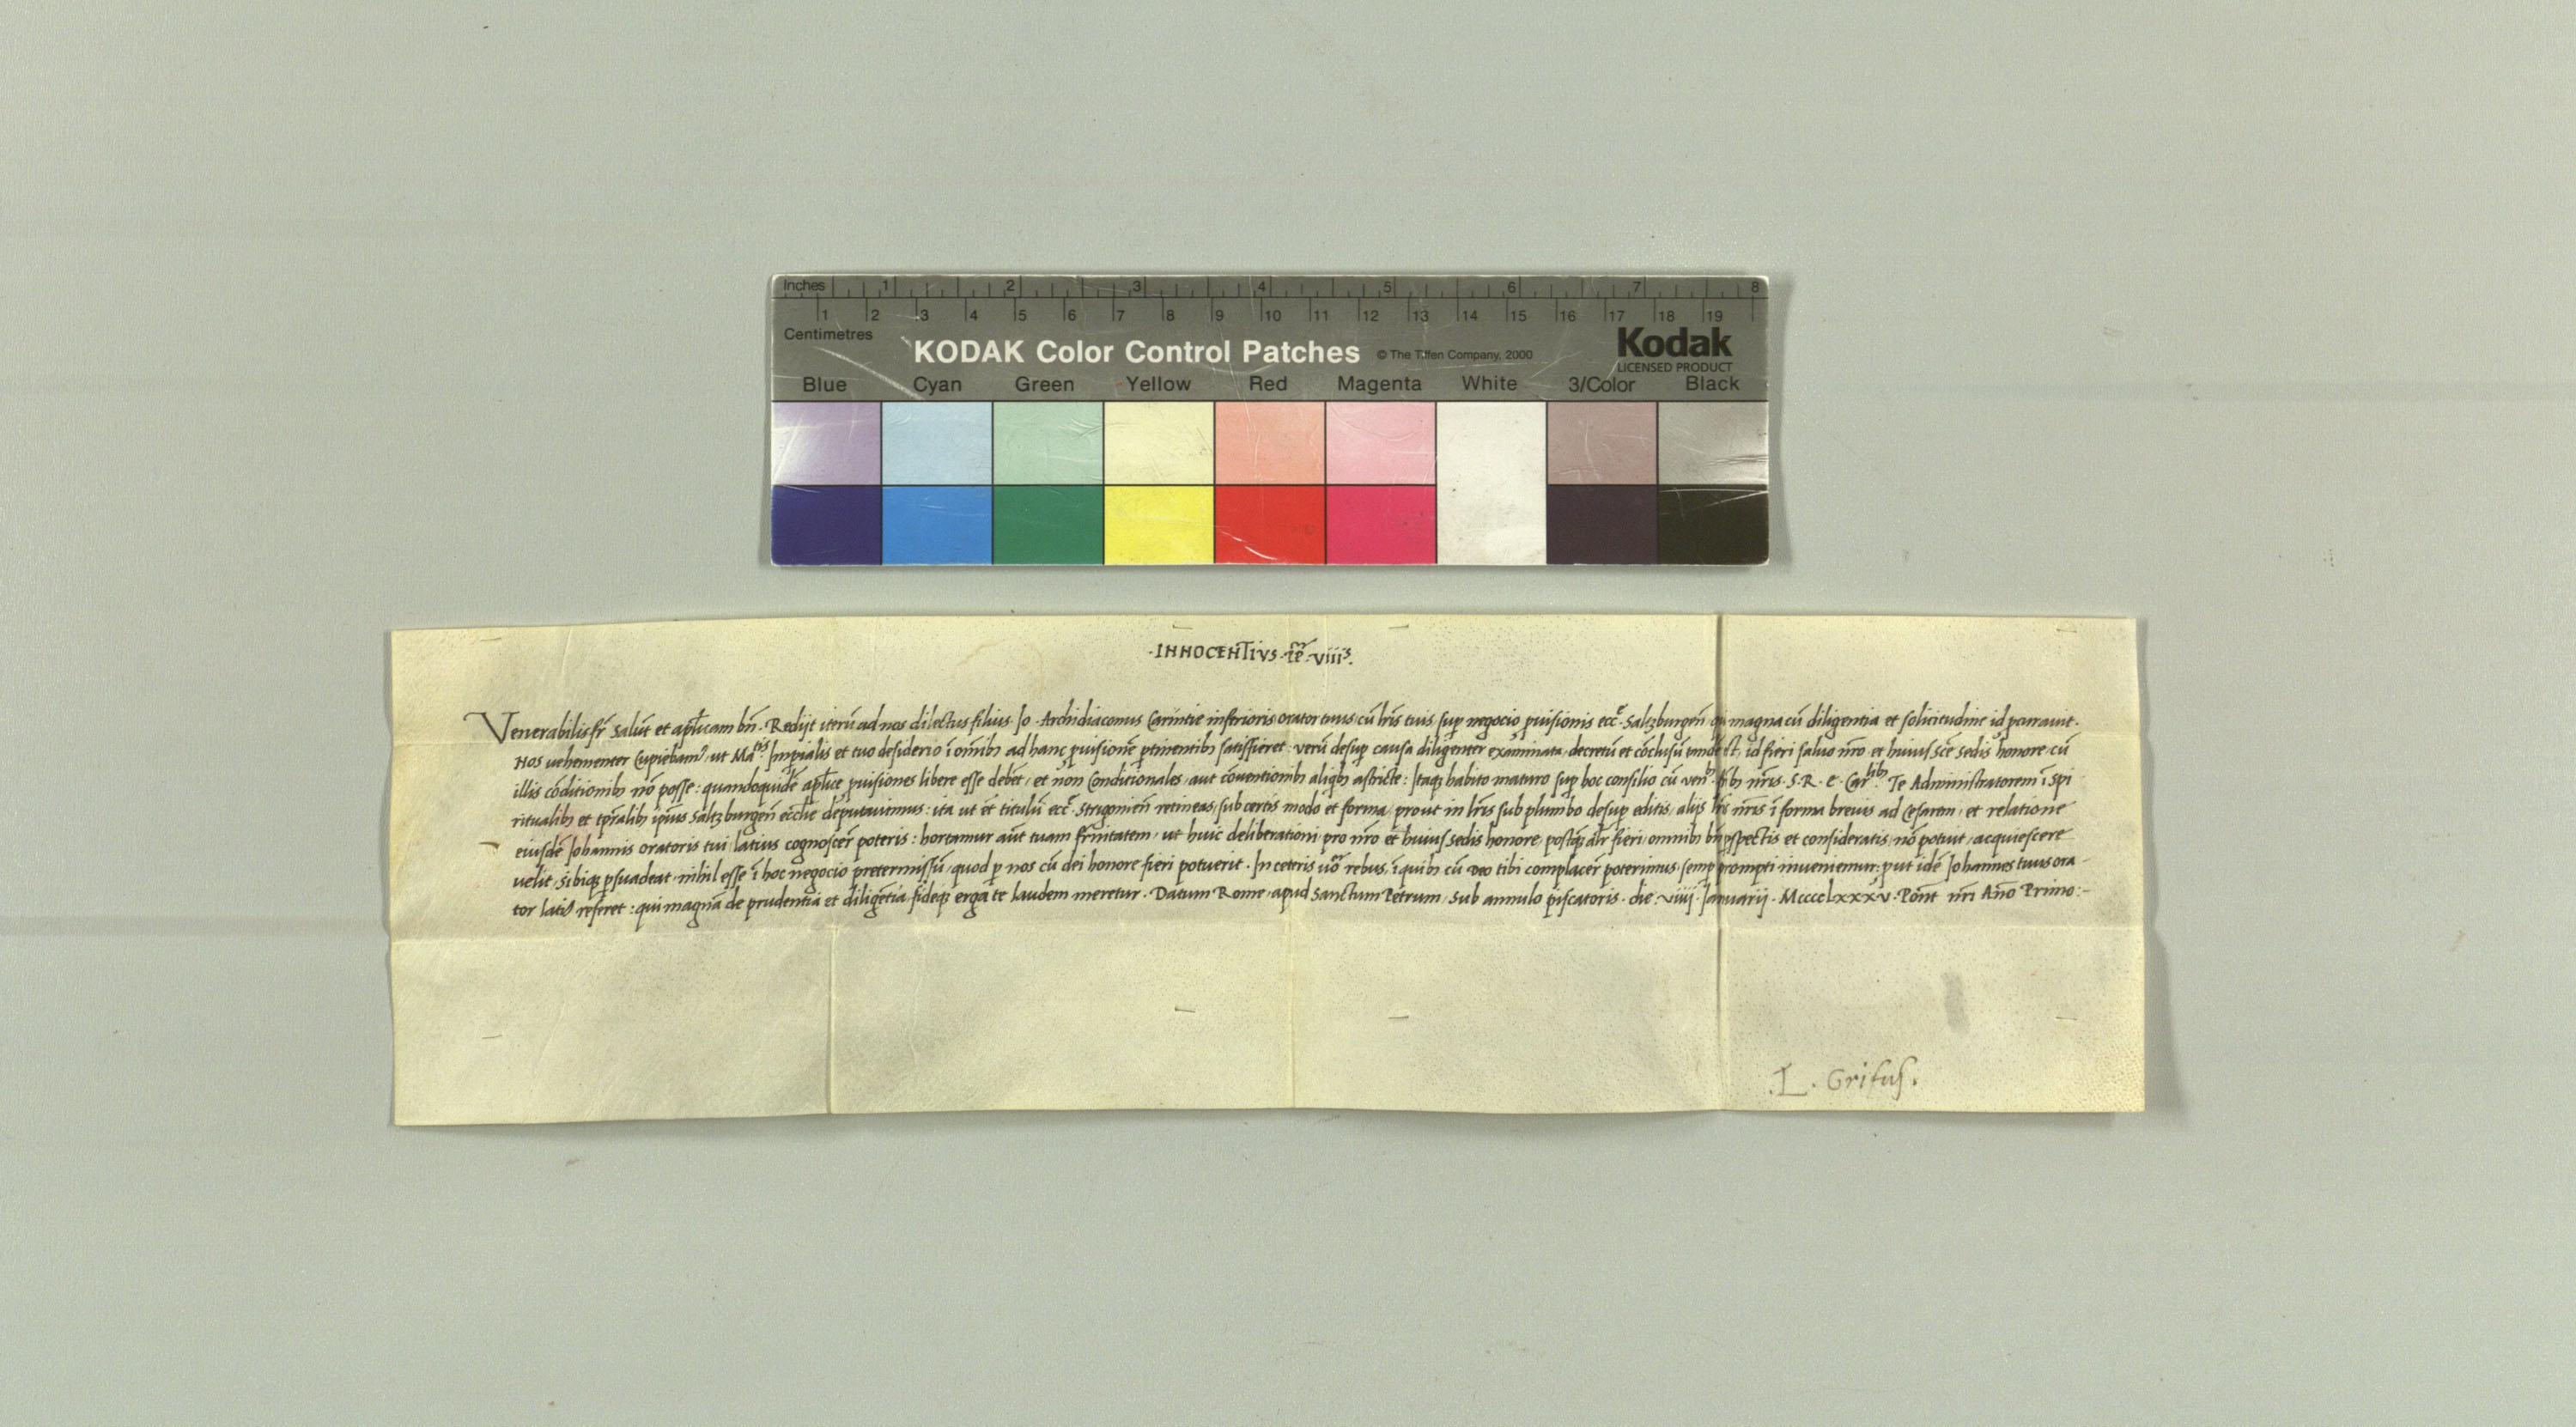 Inches 1 2 3 4 5 6 7 8
1 2 3 4 5 6 7 8 9 10 11 12 13 14 15 16 17 18 19
Centimetres
KODAK Color Control Patches © The Tiffen Company, 2000 Kodak
LICENSED PRODUCT
Blue Cyan Green Yellow Red Magenta White 3/Color Black
·INNOCENTIVS· ꝑꝑ ·viiiˢ·
Venerabilis fr̄ Salūt et apl̄icam bn̄. Redijt iterū ad nos dilectus filius Jo. Archidiaconus Carintie inferioris orator tuus cū l̄ris tuis suꝑ negocio ꝓuisionis ecc̄ᵉ. Saltzburgen̄ qi magna cū diligentia et solicitudine id ꝓcurauit.
Nos uehementer Cupiebamꝰ, ut Maᵗⁱˢ Imꝑialis et tuo desiderio ī om̄ibꝫ ad hanc ꝓuisionē ꝑtinentibꝫ satisfieret, verū desuꝑ causa diligenter examinata, decretū et cōclusū tandē est, id fieri saluo nr̄o et huius sce sedis honore cū
illis cōditionibꝫ nō posse: quandoquidē apl̄ice ꝓuisiones libere esse debēt, et non Condicionales, aut cōuentionibꝫ aliqbꝫ astricte: Itaqꝫ habito maturo suꝑ hoc consilio cū venᵇ. fr̄ibꝫ nr̄is .S.R.E. Carˡⁱᵇꝫ Te Administratorem ī spi
ritualibꝫ et tp̄ralibꝫ ip̄ius Saltzburgen̄ eccl̄ie deputauimus: ita ut et titulū ecc̄ᵉ. Strigonien̄ retineas, sub certis modo et forma, prout in l̄ris sub plumbo desuꝑ editis, alijs l̄ris nr̄is ī forma breuis ad Cesarem, et relatione
eiusdē Johannis oratoris tui latius cognoscer̄ poteris: hortamur aūt tuam fr̄nitatem, ut huic deliberationi pro nr̄o et huius sedis honore, postqꝫ alr̄ fieri, omnibꝫ bn̄ ꝑspectis et consideratis, nō potuit, acquiescere
uelit, sibiqꝫ ꝑsuadeat, nihil esse ī hoc negocio pretermissū, quod ꝑ nos cū dei honore fieri potuerit. In ceteris uō rebus, ī quibꝫ cū deo tibi complacer̄ poterimus, semꝑ prompti inueniemur: ꝓut idē Johannes tuus ora
tor latiꝰ referet: qui magnā de prudentia et diligētia, fideqꝫ erga te laudem meretur. Datum Rome, apud Sanctum Petrum, Sub annulo piscatoris. die .viiij. Januarij. Mcccclxxxv. Pont̄ nr̄i An̄o Primo:-
.L. Grifus.